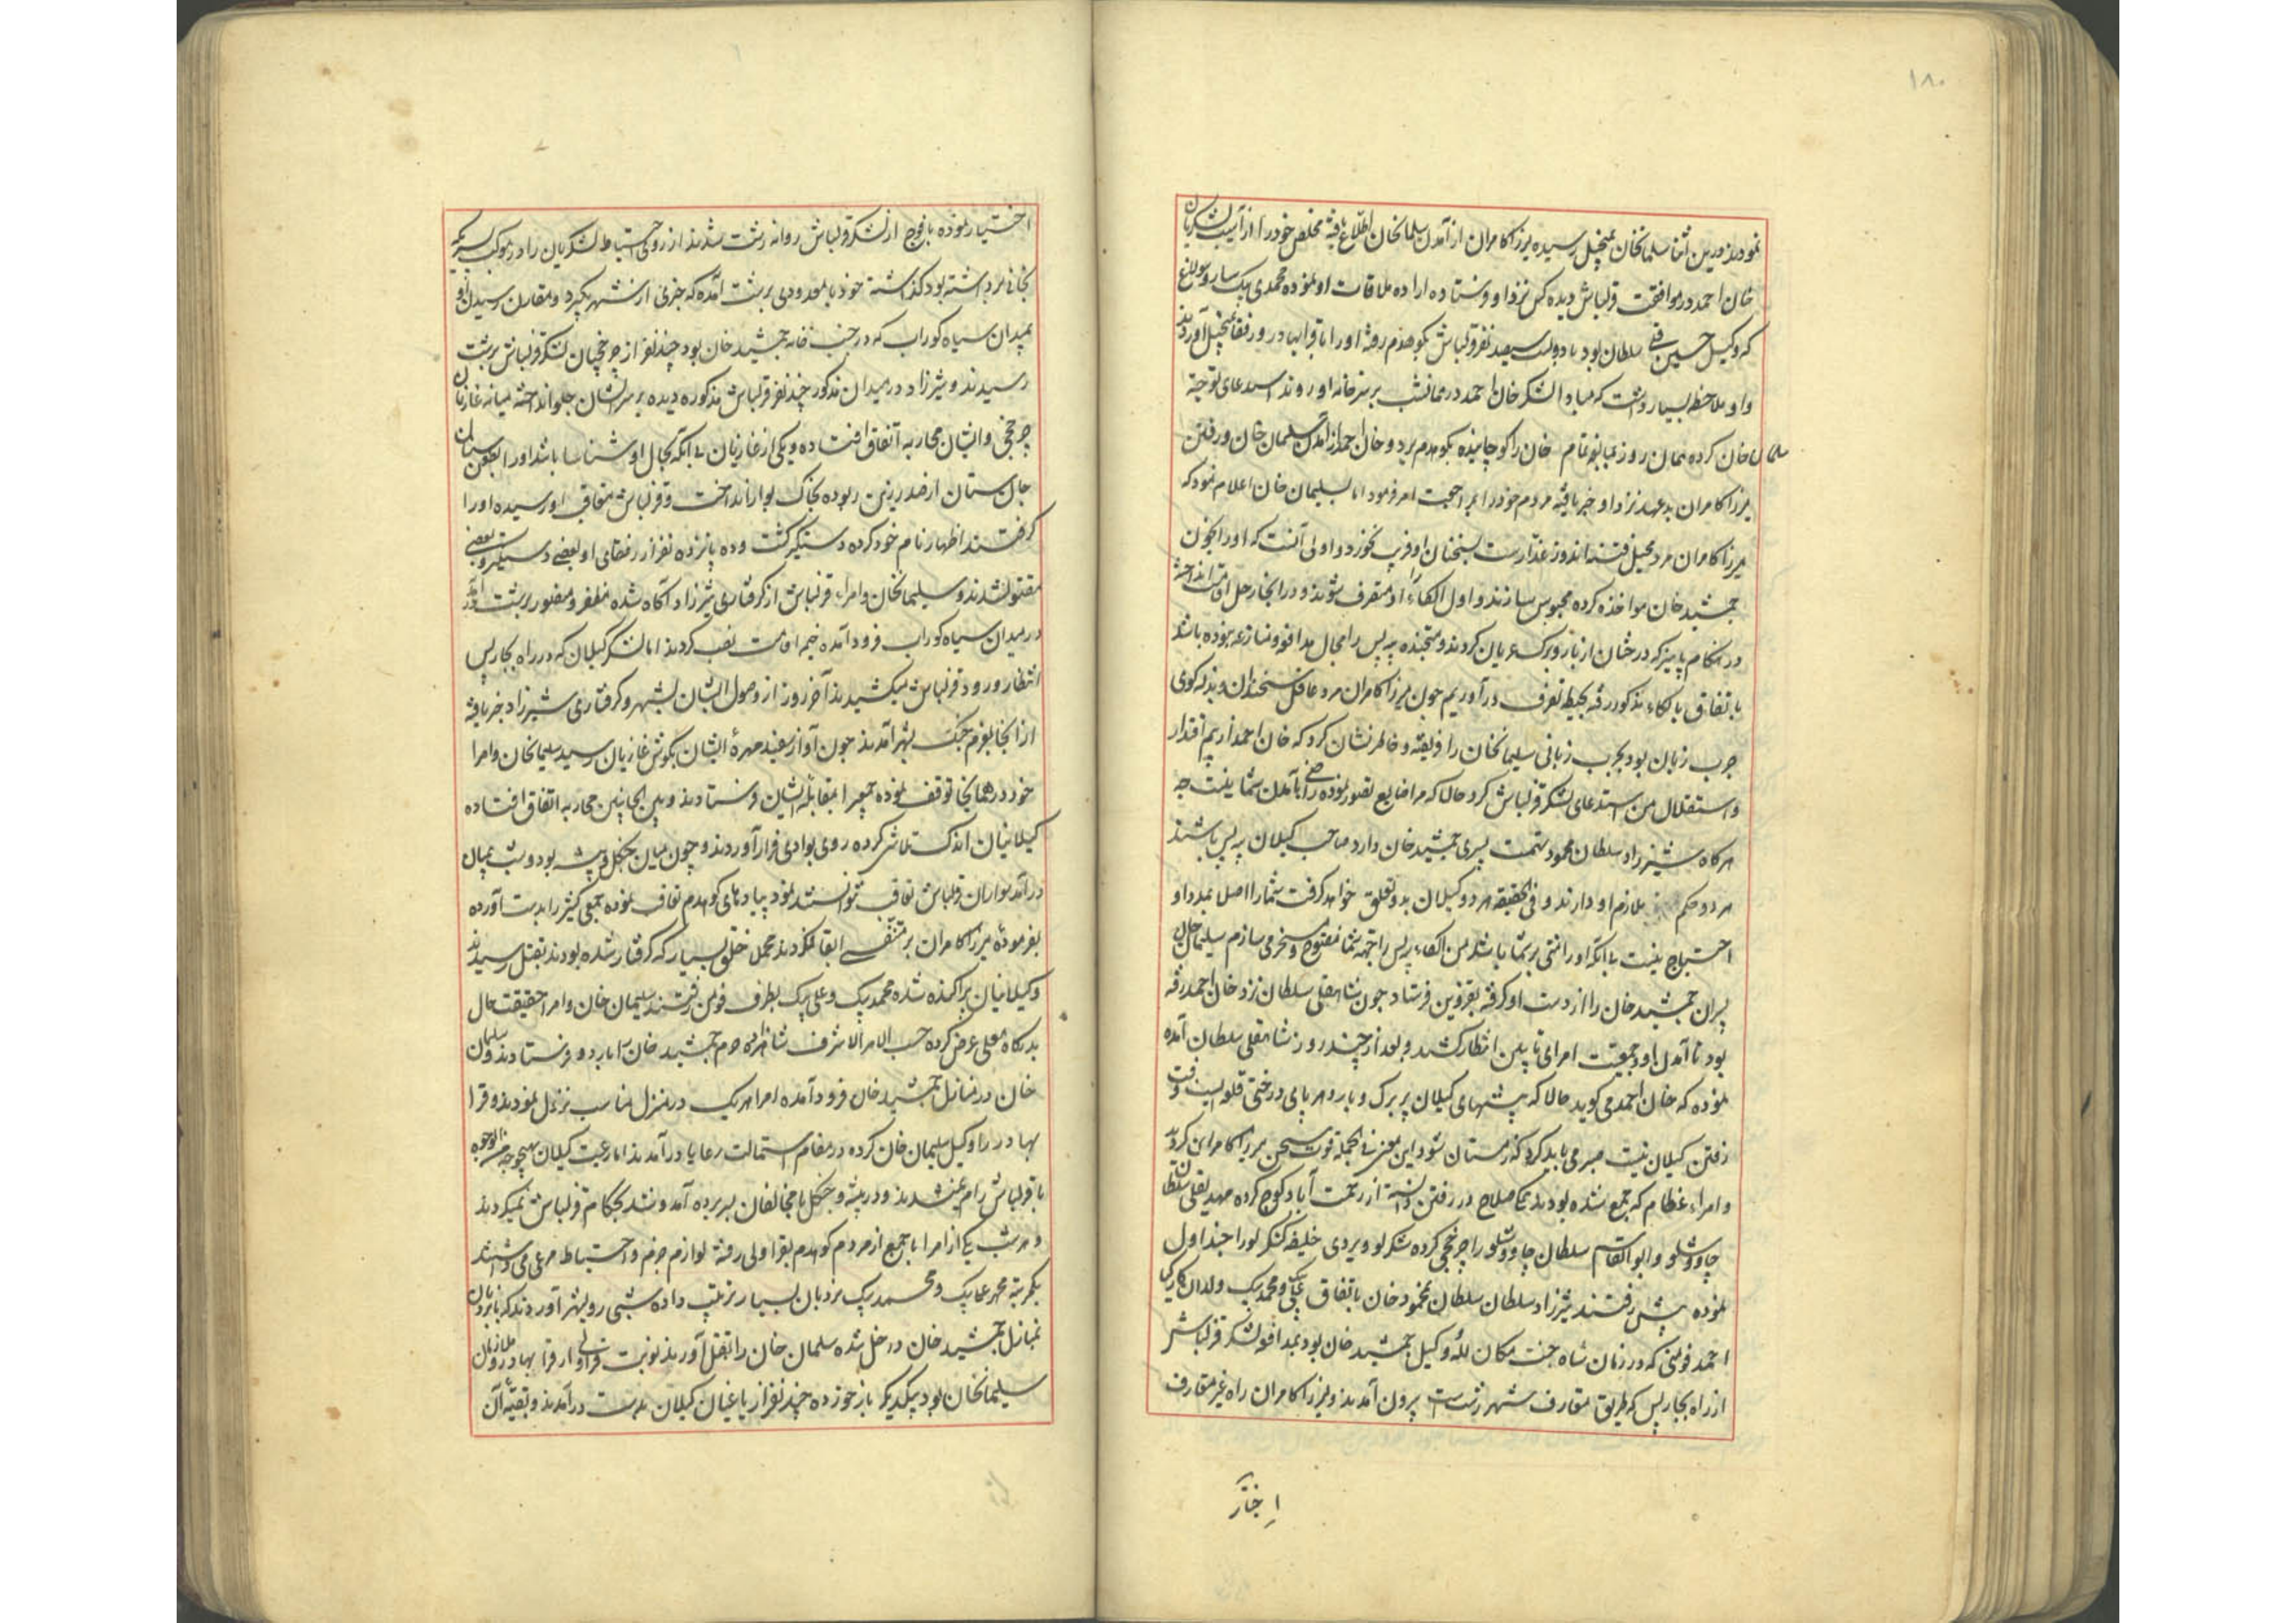 ۱۸۰
نمودند درین اثنا سلیمانخان بمنجیل رسیده میرزا کامران از آمدن سلیمانخان اطلاع یافته مخلص خود را از آسیب لشکریان
خان احمد در موافقت قزلباش دیده کس نزد او فرستاده اراده ملاقات او نموده محمدی بیک سارو سولاغ
که وکیل حسین قلی سلطان بود با دویست سیصد نفر قزلباش بکوهدم رفته او را با قرابهادر و رفقا بمنجیل آوردند
و او ملاحظه بسیار داشت که مبادا لشکر خان احمد در همانشب بر سر خانه او روند استدعای توجه
سلیمان خان کرده همان روز بمبالغه تمام خان را کوچانیده بکوهدم برد و خان احمد از آمدن سلیمان خان و رفتن
میرزا کامران بدعهد نزد او خبر یافته مردم خود را بمراجعت امر فرمود اما بسلیمان خان اعلام نمود که
میرزا کامران مرد محیل فتنه اندوز غدارست بسخنان او فریب نخورد و اولی آنست که او را بخون
جمشید خان مواخذه کرده محبوس سازند و اول الکاء او متصرف شوند و در انجا رحل اقامت انداخته
در هنکام پاییز که درختان از بار و برک عریان کردند و متجنده پیه پس را مجال مدافعه و منازعه نبوده باشد
باتفاق بالکاء مذکور رفته بحیطه تصرف درآوریم چون میرزا کامران مرد عاقل سخندان و بذله کوی
چرب زبان بود بچرب زبانی سلیمانخان را فریفته و خاطرنشان کرد که خان احمد از بیم اقتدار
و استقلال من استدعای لشکر قزلباش کرد حالا که مرا ضایع تصور نموده راضی بآمدن شما نیست چه
هرکاه شیرزاد سلطان محمود تهمت پسری جمشید خان دارد صاحب کیلان پیه پس باشند
هر دو حکم ملازم او دارند و فی الحقیقه هر دو کیلان بدو تعلق خواهد کرفت شما را اصلا بمدد او
احتیاج نیست بی آنکه او را منتی بر شما باشد من الکاء پیه پس را بجهه شما مفتوح و مسخر می سازم سلیمان خان
پسران جمشید خان را از دست او کرفته بقزوین فرستاد چون شاهقلی سلطان نزد خان احمد رفته
بود تا آمدن او و جمعیت امرای تابین انتظار کشید و بعد از چند روز شاهقلی سلطان آمده
نموده که خان احمد می کوید حالا که بیشهای کیلان پر برک و بار و هر پای درختی قلعه ایست وقت
رفتن کیلان نیست صبر می باید کرد که زمستان شود این معنی فی الجمله قوت سخن میرزا کامران کردید
و امراء عظام که جمع شده بودند همکی صلاح در رفتن دانسته از رحمت آباد کوچ کرده مهدیقلی سلطان
چاوشلو و ابوالقاسم سلطان چاوشلو را چرخچی کرده شکر لو ویردی خلیفه کنکرلو را چنداول
نموده پیش رفتند شیرزاد سلطان سلطان محمود خان باتفاق علی بیک و محمد بیک ولدان کارکیا
احمد فومنی که در زمان شاه جنت مکان لله و وکیل جمشید خان بود بمدافعه لشکر قزلباش
از راه بجارپس که طریق متعارف شهر رشت است بیرون آمدند و میرزا کامران راه غیر متعارف
اختیار
اختیار نموده با فوج از لشکر قزلباش روانه رشت شدند از روی احتیاط لشکریان را در موکب
بجائی مرداشته بود کذاشته خود با معدودی برشت آمده که خبری از شهر بکیرد و مقارن رسیدن او
بمیدان سیاه کوراب که در جنب خانه جمشید خان بود چند نفر از چرخچیان لشکر قزلباش برشت
رسیدند و شیرزاد در میدان مذکور چند نفر قزلباش مذکوره دیده بر سر ایشان جلو انداخته میانه غازیان
چرخچی و ایشان محاربه اتفاق افتاده و یکی از غازیان بی آنکه بحال او شناسا باشد او را بطعن سنان
جان ستان از صدر زین ربوده بخاک بوار انداخت و قزلباش متعاقب او رسیده او را
کرفتند اظهار نام خود کرده دستکیر کشت و ده پانزده نفر از رفقای او بعضی دستکیر و بعضی
مقتول شدند و سلیمانخان و امراء قزلباش از کرفتاری شیرزاد آکاه شده مظفر و منصور برشت درآمده
در میدان سیاه کوراب فرود آمده خیمه اقامت نصب کردند اما لشکر کیلان که در راه بجارپس
انتظار ورود قزلباش میکشیدند آخر روز از وصول ایشان بشهر و کرفتاری شیرزاد خبر یافته
از انجا بعزم جنک بشهر آمدند چون آواز سفید مهره ایشان بکوش غازیان رسید سلیمانخان و امرا
خود در همانجا توقف نموده جمعی را بمقابله ایشان فرستادند و بین الجانبین محاربه اتفاق افتاده
کیلانیان اندک تلاشی کرده روی بوادی فرار آوردند و چون میان جنکل و بیشه بود و شب بمیان
درآمد سواران قزلباش تعاقب نتوانستند نمود پیادهای کوهدم تعاقب نموده جمعی کثیر را بدست آورده
بفرموده میرزا کامران بر متنفسی ابقا نمکردند مجملا خلق بسیار که کرفتار شده بودند بقتل رسیدند
و کیلانیان پراکنده شده محمد بیک و علی بیک بطرف فومن رفتند سلیمان خان و امرا حقیقت حال
بدرکاه معلی عرض کرده حسب الامر الاشرف شاهزاده حرم جمشید خان را باردو فرستادند و سلیمان
خان در منازل جمشید خان فرود آمده امرا هریک در منزل مناسب نزول نمودند و قرا
بهادر را وکیل سلیمان خان کرده در مقام استمالت رعایا درآمدند اما رعیت کیلان بهیچوجه من الوجوه
با قزلباش رام نمیشدند و در بیشه و جنکل با مخالفان بسر برده آمد و شد بحکام قزلباش نمیکردند
و هر شب یکی از امرا با جمیع از مردم کوهدم بقراولی رفته لوازم حزم و احتیاط مرعی می داشتند
یکمرتبه محمد علی بیک و محمد بیک نردبان بسیار ترتیب داده شبی رو بشهر آوردند که با نردبان
بمنازل جمشید خان داخل شده سلیمان خان را بقتل آورند نوبت قراولی از قرا بهادر و ملازمان
سلیمانخان بود بیکدیکر باز خورده چند نفر از یاغیان کیلان بدست درآمدند و بقیه آن